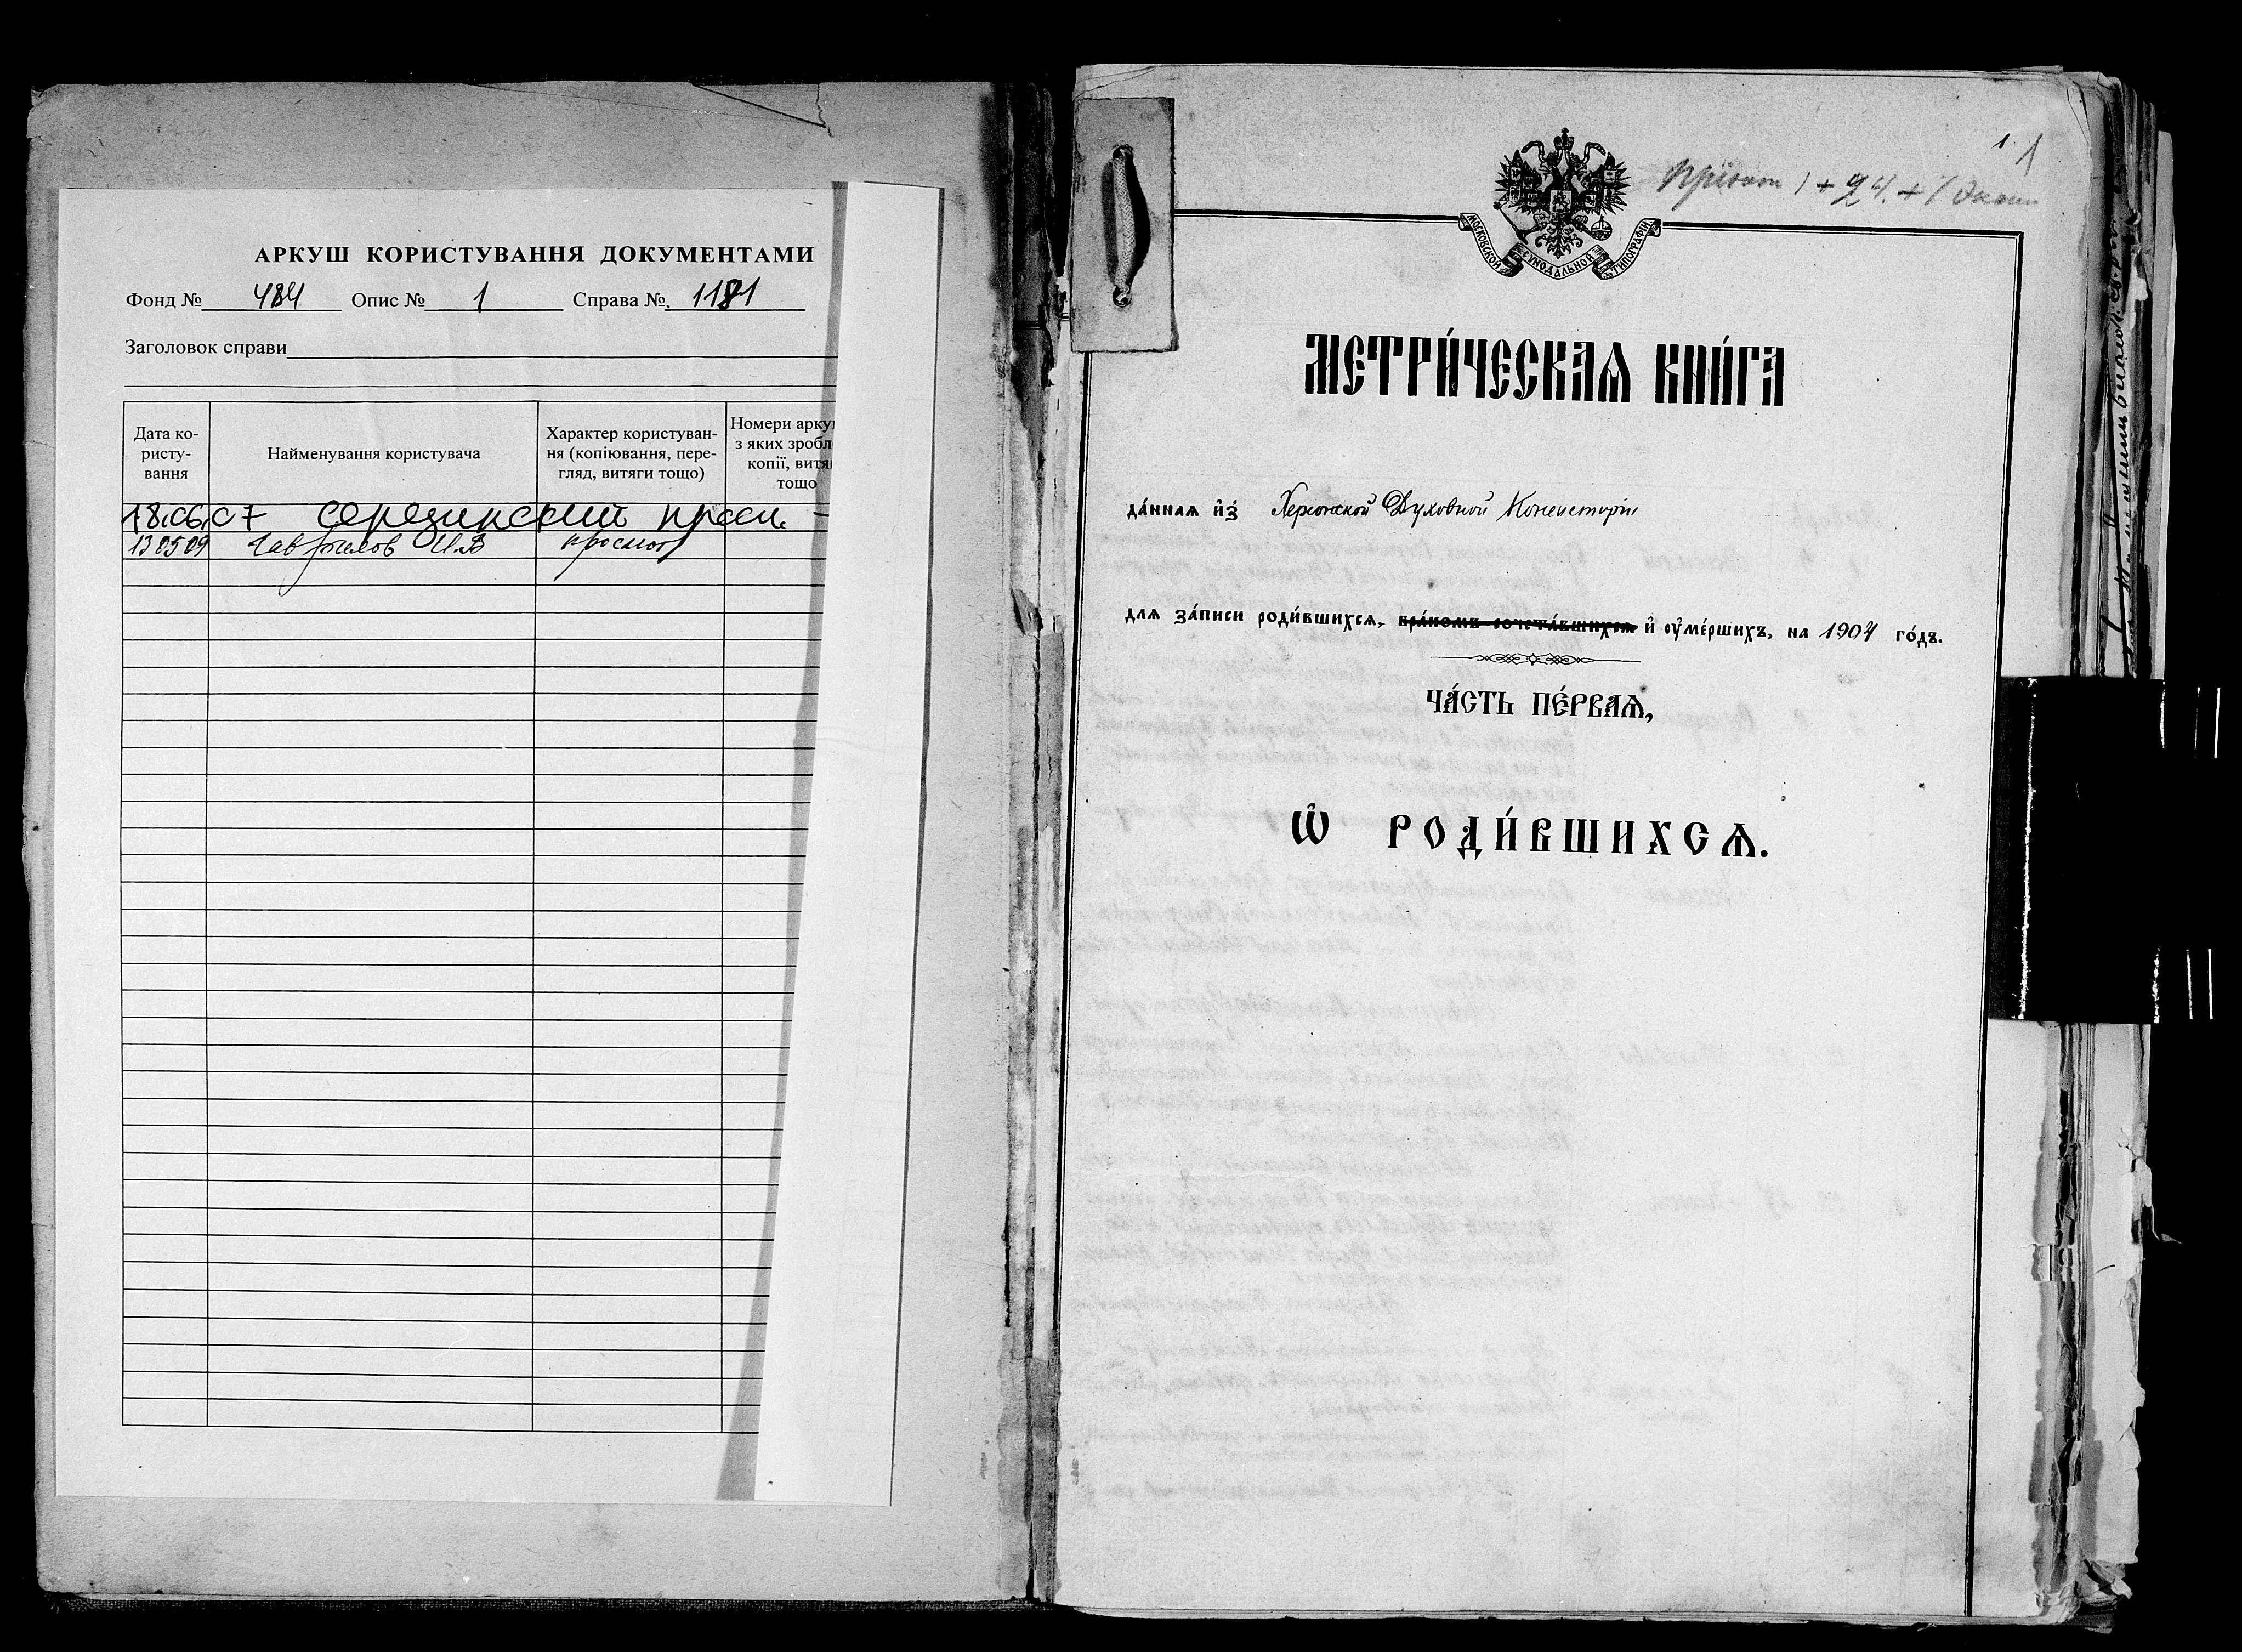 АРКУШ КОРИСТУВАННЯ ДОКУМЕНТАМИ
Фонд № 484 Опис № 1 Справа №. 1181
Заголовок справи
Дата ко-
ристу-
вання
Найменування користувача
Характер користуван-
ня (копіювання, пере-
гляд, витяги тощо)
Номери арку
з яких зробл
копії, витя
тощо
18.06.07 Середински просм. -
130509 Гаврилов И.В просмотр
1
МОСКОВСКОЙ СѴНОДАЛЬНОЙ ТИПОГРАФІИ
МЕТРИ́ЧЕСКАѦ КНИ́ГА
да́ннаѧ и҆з̾ Херсонской Духовной Консисторіи
длѧ за́писи роди́вшихсѧ, бра́комъ сочета́вшихсѧ и҆ ᲂу҆ме́ршихъ, на 1904 го́дъ.
ЧА́СТЬ ПЕ́РВАѦ,
Ѽ РОДИ́ВШИХСѦ.